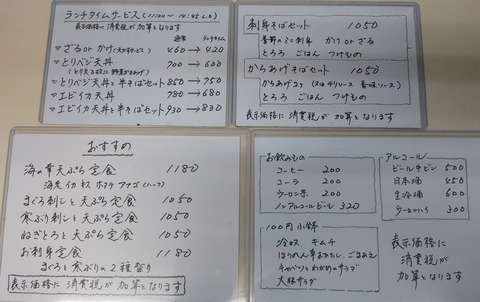 ランチタイムサービス (11:00〜14:45 L.O)
表示価格に消費税が加算となります
通常 ランチタイム
♥ ざる or かけ (大盛サービス) 460→420
♥ とりベジ天丼 700→600
(とり天2枚に野菜がのります)
♥ とりベジ天丼と半そばセット 850→750
♥ エビイカ天丼 780→680
♥ エビイカ天丼と半そばセット 930→830
刺身そばセット 1050
ミニ刺身 かけ or ざる
とろろ ごはん つけもの
からあげそばセット 1050
からあげ2ヶ (又は チリソース 香味ソース)
とろろ ごはん つけもの
表示価格に消費税が加算となります
おすすめ
海の幸天ぷら定食 1180
海老 イカ キス ホタテ アナゴ (ハーフ)
まぐろ刺しと天ぷら定食 1050
寒ぶり刺しと天ぷら定食 1050
ねぎとろと天ぷら定食 1050
お刺身定食 1180
まぐろと寒ぶりの2種盛り
表示価格に消費税が加算となります
お飲みもの
コーヒー 200
コーラ 200
ウーロン茶 200
ノンアルコールビール 320
100円小鉢
冷奴 キムチ
ほうれん草おひたし ごまあえ
キャベツとわかめのサラダ
大根サラダ
アルコール
ビール中ビン 500
日本酒 450
生冷酒 600
ウーロンハイ 300
表示価格に
消費税が
加算となります